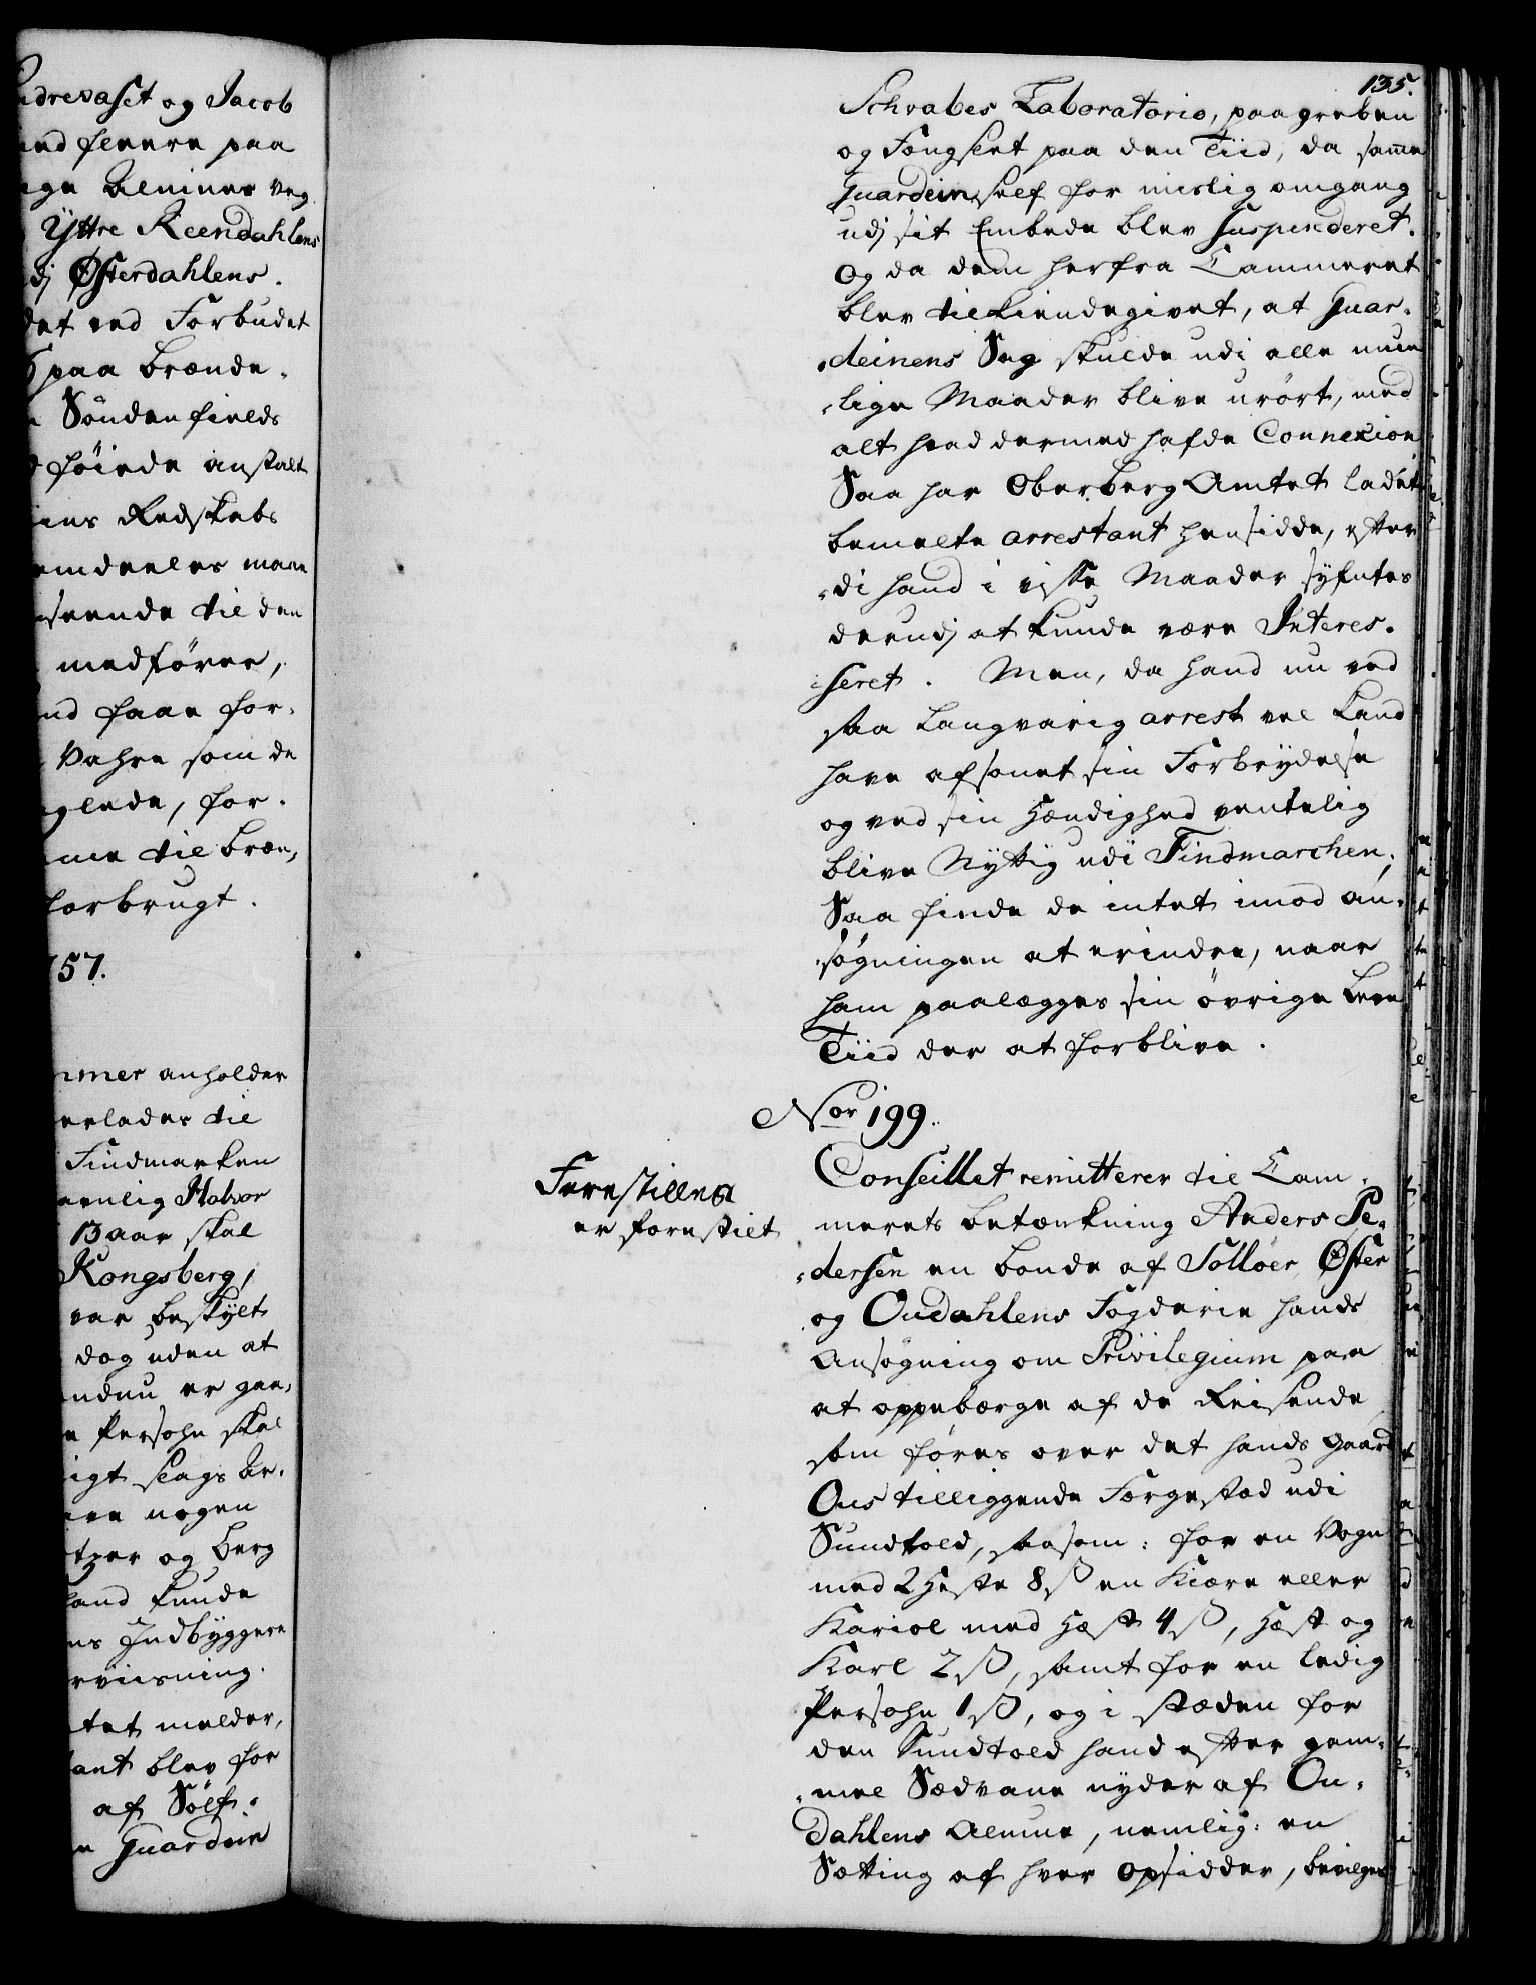 drevaset og Jacob
end fleere paa
Alminer veg
Yttre Reendahlens
dj Østerdahlens.
det ved Forbudet
paa brænde-
Söndenfields
höiede anstalt
iens Redskabs
emdeeles maae
seende til den
medfører,
nd faae for-
Vahre som de
glede, for-
me til bræn-
forbrugt.
757.
mmer anholder
erlades til
Findmarken
nemlig Halvor
13 aar skal
Kongsberg,
var beskylt
dog uden at
endnu er gaa-
Persohn skal
igt slags Ar-
nogen
og berg
hand kunde
ns Indbyggere
rviisning.
tet melder,
ant blev for
af Sölf-
Guardein
135.
Schvabes Laboratorio, paagreben
og Fengslet paa den Tiid, da samme
Guardein self for mislig omgang
udj sit Embede blev Suspenderet.
Og da dem herfra Cammeret
blev tilkiendegivet, at Guar-
deinens Sag skulde udi alle mue-
lige Maader blive urört, med
alt hvad dermed hafde Connexion
Saa har Oberberg Amtet ladet
bemelte arrestant hensidde, efter-
di hand i visse Maader syntes
derudj at kunde være Interes-
seret. Men, da hand nu ved
saa langvarig arrest vel kand
have afsonet sin Forbrydelse
og ved sin Hændighed ventelig
blive Nyttig udi Findmarchen,
Saa finde de intet imod an-
søgningen at erindre, naar
ham paalegges sin övrige Leve
Tiid der at forblive.
Nor 199.
Forestilles
er forestilt
Conseillet remitterer til Cam-
merets betænkning Anders Pe-
dersen en bonde af Sollöer, Øster
og Oudahlens Fogderie hands
Ansøgning om Privilegium paa
at oppebærge af de Reisende
som føres over det hands Gaard
Ous tilliggende Færgestæd udi
Sundtold, saasom: for en Vogn
med 2 Heste 8 ß en Kiære eller
Kariol med Hest 4 ß, Hæst og
Karl 2 ß, samt for en ledig
Persohn 1 ß, og i stæden for
den Sundtold hand efter gam-
mel Sædvane nyder af Ou-
dahlens Almue, nemlig: en
Sætting af hver Opsidder, bevilges